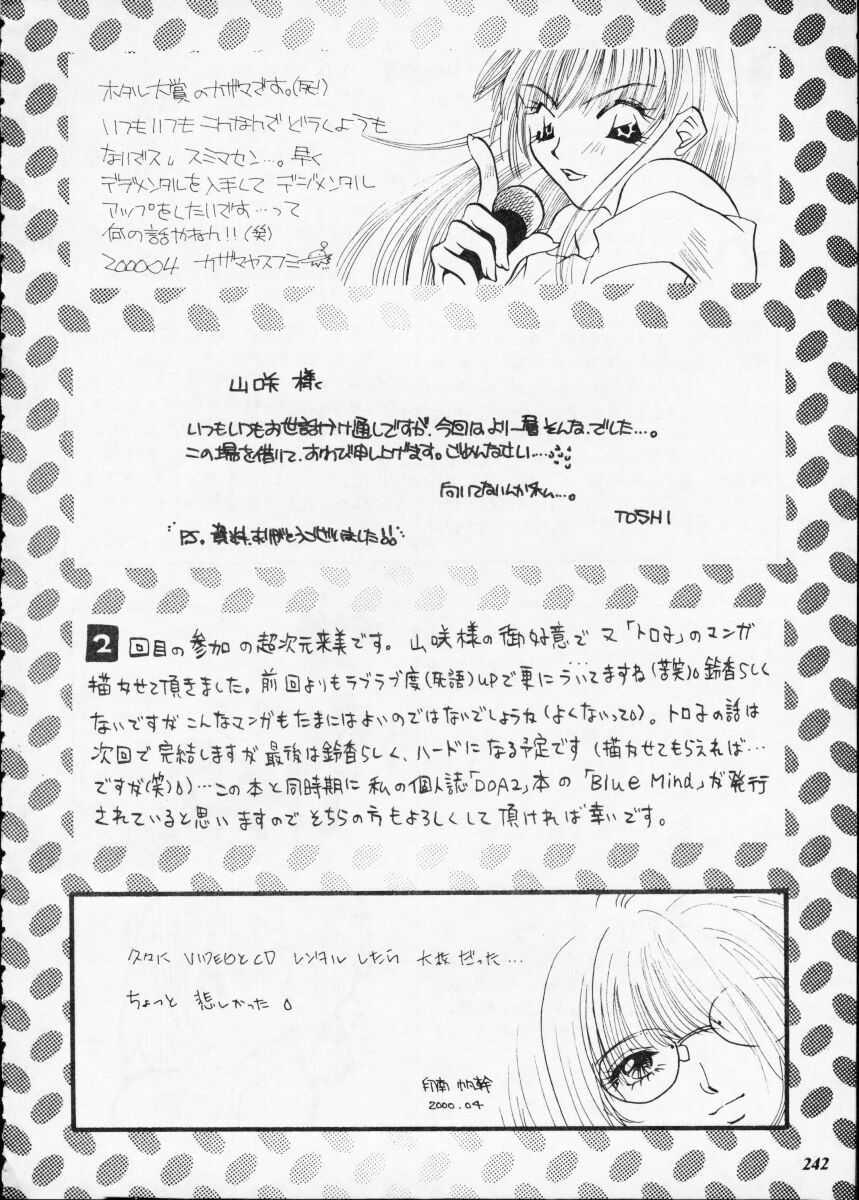 ホタル大賞のカザマです。(死)
いつもいつもこんなんでどうしようも
ないデスし スミマセン…。早く
デジメンタルを入手して デジメンタル
アップをしたいです…って
何の話かなれ!!(笑)
200004 カザマヤスフミ
山咲 様
いつもいつもお世話かけ通しですが、今回はより一層そんな、でした…。
この場を借りて、おわび申し上げます。ごめんなさい…
向いてないんかなん…。
TOSHI
P.S. 資料、ありがとうございました!!
2回目の参加の超次元来美です。山咲様の御好意で又「トロ子」のマンガ
描かせて頂きました。前回よりもラブラブ度(死語)UPで更にういてますね(苦笑)。鈴香らしく
ないですがこんなマンガもたまにはよいのではないでしょうね(よくないって)。トロ子の話は
次回で完結しますが最後は鈴香らしく、ハードになる予定です(描かせてもらえれば…
ですが(笑))…この本と同時期に私の個人誌「DOA2」本の「Blue Mind」が発行
されていると思いますのでそちらの方もよろしくして頂ければ幸いです。
久々に VIDEOとCD レンタルしたら 大抵だった…
ちょっと 悲しかった
印南 帆幹
2000.04
242